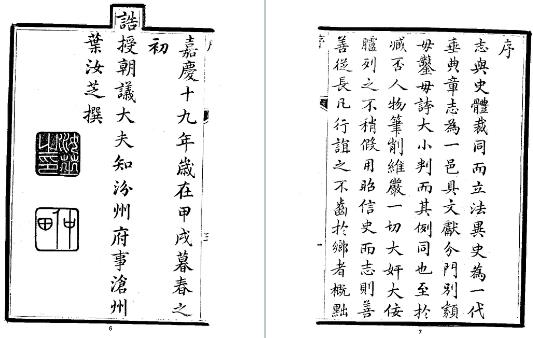 序
志與史體裁同而立法異史為一代
垂典章志為一邑具文獻分門別類
毋鑿毋誇大小判而其例同也至於
臧否人物筆削維嚴一切大奸大佞
臚列之不稍假用昭信史而志則善
善從長凡行誼之不齒於鄉者概黜
7
嘉慶十九年歲在甲戌暮春之
初
誥授朝議大夫知汾州府事滄州
葉汝芝撰
仲田
6